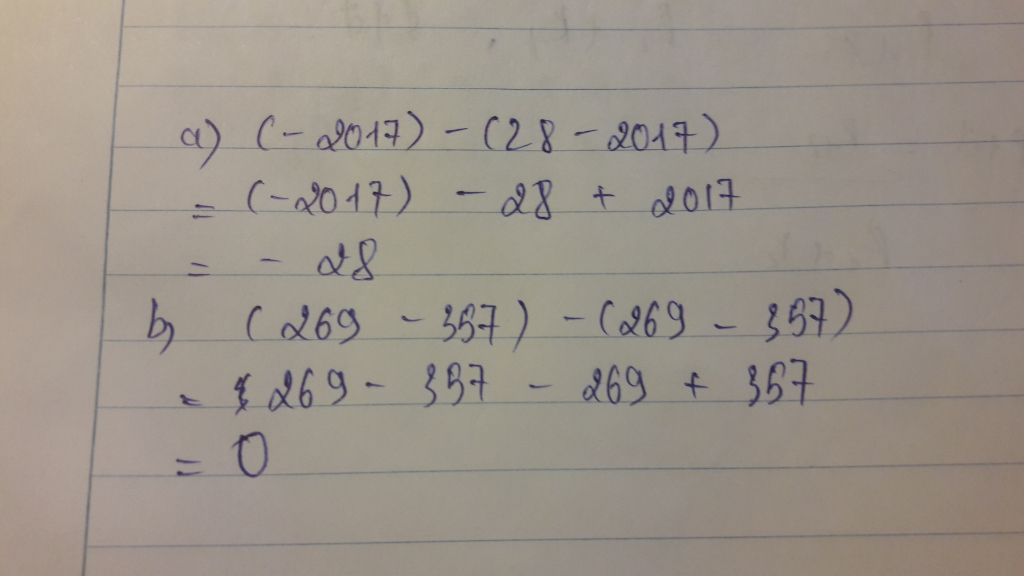 a) (-2017) - (28 - 2017)
= (-2017) - 28 + 2017
= - 28
b) (269 - 357) - (269 - 357)
= 269 - 357 - 269 + 357
= 0